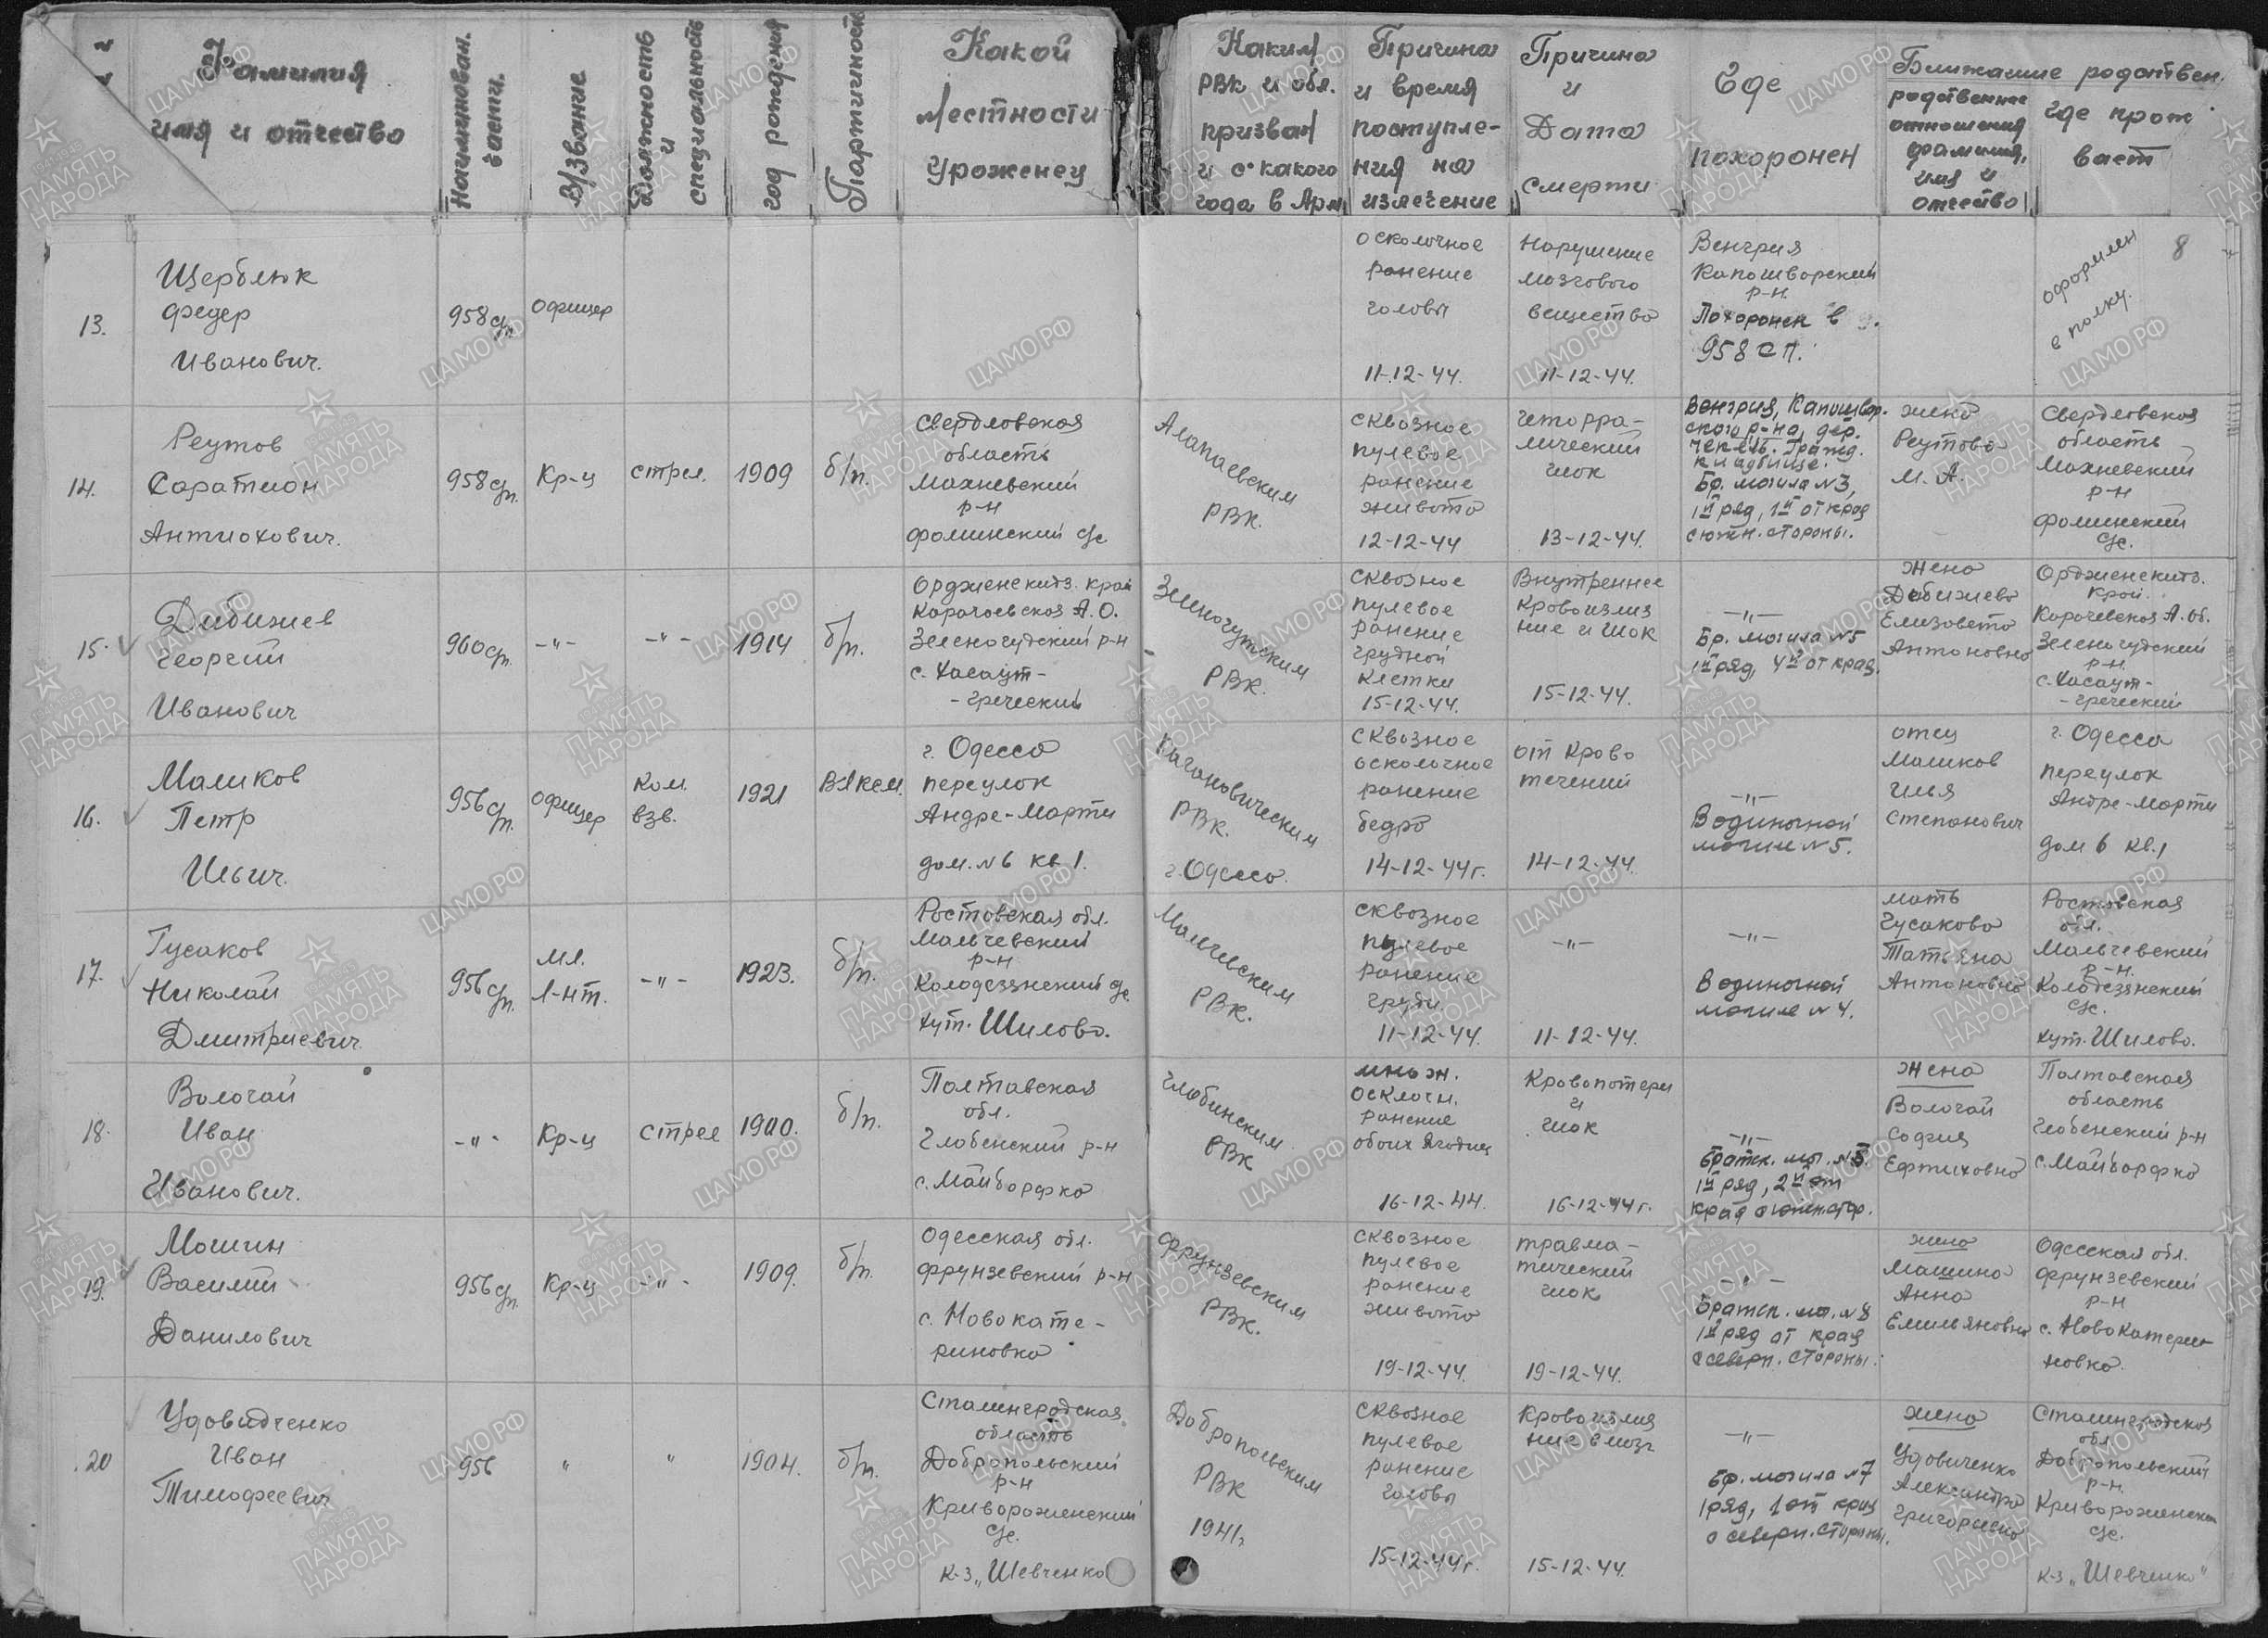 Фамилия
имя и отчество
Наименован.
части.
В/звание
Должность
и
специальность
год рождения
Партийность
Какой
местности
уроженец
Каким
РВК и обл.
призван
и с какого
года в Арм
Причина
и время
поступле-
ния на
излечение
Причина
и
Дата
смерти
Где
похоронен
Ближайшие родствен.
родственное
отношения
фамилия,
имя и
отчество
где прож
вает
8
13.
Щерблюк
Федер
Иванович.
958 сп.
Офицер
осколочное
ранение
головы
11-12-44.
Нарушение
мозгового
вещества
11-12-44.
Венгрия
Капошворский
р-н.
Похоронен в
958 СП.
оформлен
в полку.
14.
Реутов
Саратион
Антиохович.
958 сп.
Кр-ц
стрел.
1909
б/п.
Свердловская
область
Махневский
р-н
Фоминский с/с
Алапаевским
РВК.
Сквозное
пулевое
ранение
живота
12-12-44
Геморра-
лический
шок
13-12-44.
Венгрия, Капошвор.
ского р-на, дер.
Чекель. Гражд.
кладбище.
Бр. могила №3,
1й ряд, 1й от края
с южн. стороны.
жена
Реутова
М. А.
Свердловская
область
Махневский
р-н
Фоминский
с/с.
15.
Дибижев
Георгий
Иванович
960 сп.
-"-
-"-
1914
б/п.
Орджененкидз. край
Карачаевская А.О.
Зеленчудский р-н
с. Хасаут-
-греческий
Зеленчутским
РВК.
Сквозное
пулевое
ранение
грудной
клетки
15-12-44.
Внутреннее
кровоизлия
ние и шок
15-12-44.
-"-
Бр. могила №5
1й ряд, 4й от края.
Жена
Дибижева
Елизовета
Антоновна
Ордженекидз.
край.
Карачевская А.Об.
Зеленчудский
р-н.
с. Хасаут-
-греческий
16.
Маликов
Петр
Ильич.
956 сп.
Офицер
Ком.
взв.
1921
ВЛКСМ.
г. Одесса
переулок
Андре-Марти
дом. №6 кв 1.
Кагановическим
РВК.
г. Одесса.
Сквозное
осколочное
ранение
бедра
14-12-44г.
от крово
течений
14-12-44.
-"-
В одиночной
могиле №5.
отец
Маликов
Илья
Степанович
г. Одесса
переулок
Андре-Марти
дом 6 кв.1
17.
Гусаков
Николай
Дмитриевич
956 сп.
мл.
л-нт.
-"-
1923.
б/п.
Ростовская обл.
Мальчевский
р-н
Колодезянский с/с
хут. Шилово.
Мальчевским
РВК.
сквозное
пулевое
ранение
груди.
11-12-44.
-"-
11-12-44.
-"-
В одиночной
могиле №4.
мать
Гусакова
Татьяна
Антоновна
Ростовская
обл.
Мальчевский
р-н.
Колодезянский
с/с.
хут. Шилово.
18.
Волочай
Иван
Иванович.
-"-
Кр-ц
Стрел
1900.
б/п.
Полтавская
обл.
Глобенский р-н
с. Майборфка
Глобинским
РВК
множ.
осколочн.
ранение
обоих ягодиц
16-12-44.
Кровопотери
и
шок
16-12-44г.
-"-
Братск. мог. №5.
1й ряд, 2й от
края с южн.стор.
Жена
Волочай
София
Ефтиховна
Полтавская
область
Глобенский р-н
с. Майборфка
19.
Мошин
Василий
Данилович
956 сп.
Кр-ц
-"-
1909.
б/п.
Одесская обл.
Фрунзевский р-н
с. Новокате-
риновка
Фрунзевским
РВК.
сквозное
пулевое
ранение
живота
19-12-44.
травма-
тический
шок
19-12-44.
-"-
Братск. мог. №8
1й ряд от края
с северн. стороны.
жена
Машина
Анна
Емильяновна
Одесская обл.
Фрунзевский
р-н
с. НовоКатери-
новка.
20
Удовидченко
Иван
Тимофеевич
956
"
"
1904.
б/п.
Сталинградская
область
Добропольский
р-н
Криворожинский
с/с.
к-з "Шевченко
Добропольским
РВК
1941г
Сквозное
пулевое
ранение
головы
15-12-44г.
Кровоизлия
ние в мозг
15-12-44.
-"-
Бр. могила №7
1 ряд, 1 от края
с северн. стороны.
жена
Удовиченко
Александра
Григорьевна
Сталинградская
обл
Добропольский
р-н.
Криворожинский
с/с.
к-з "Шевченко"